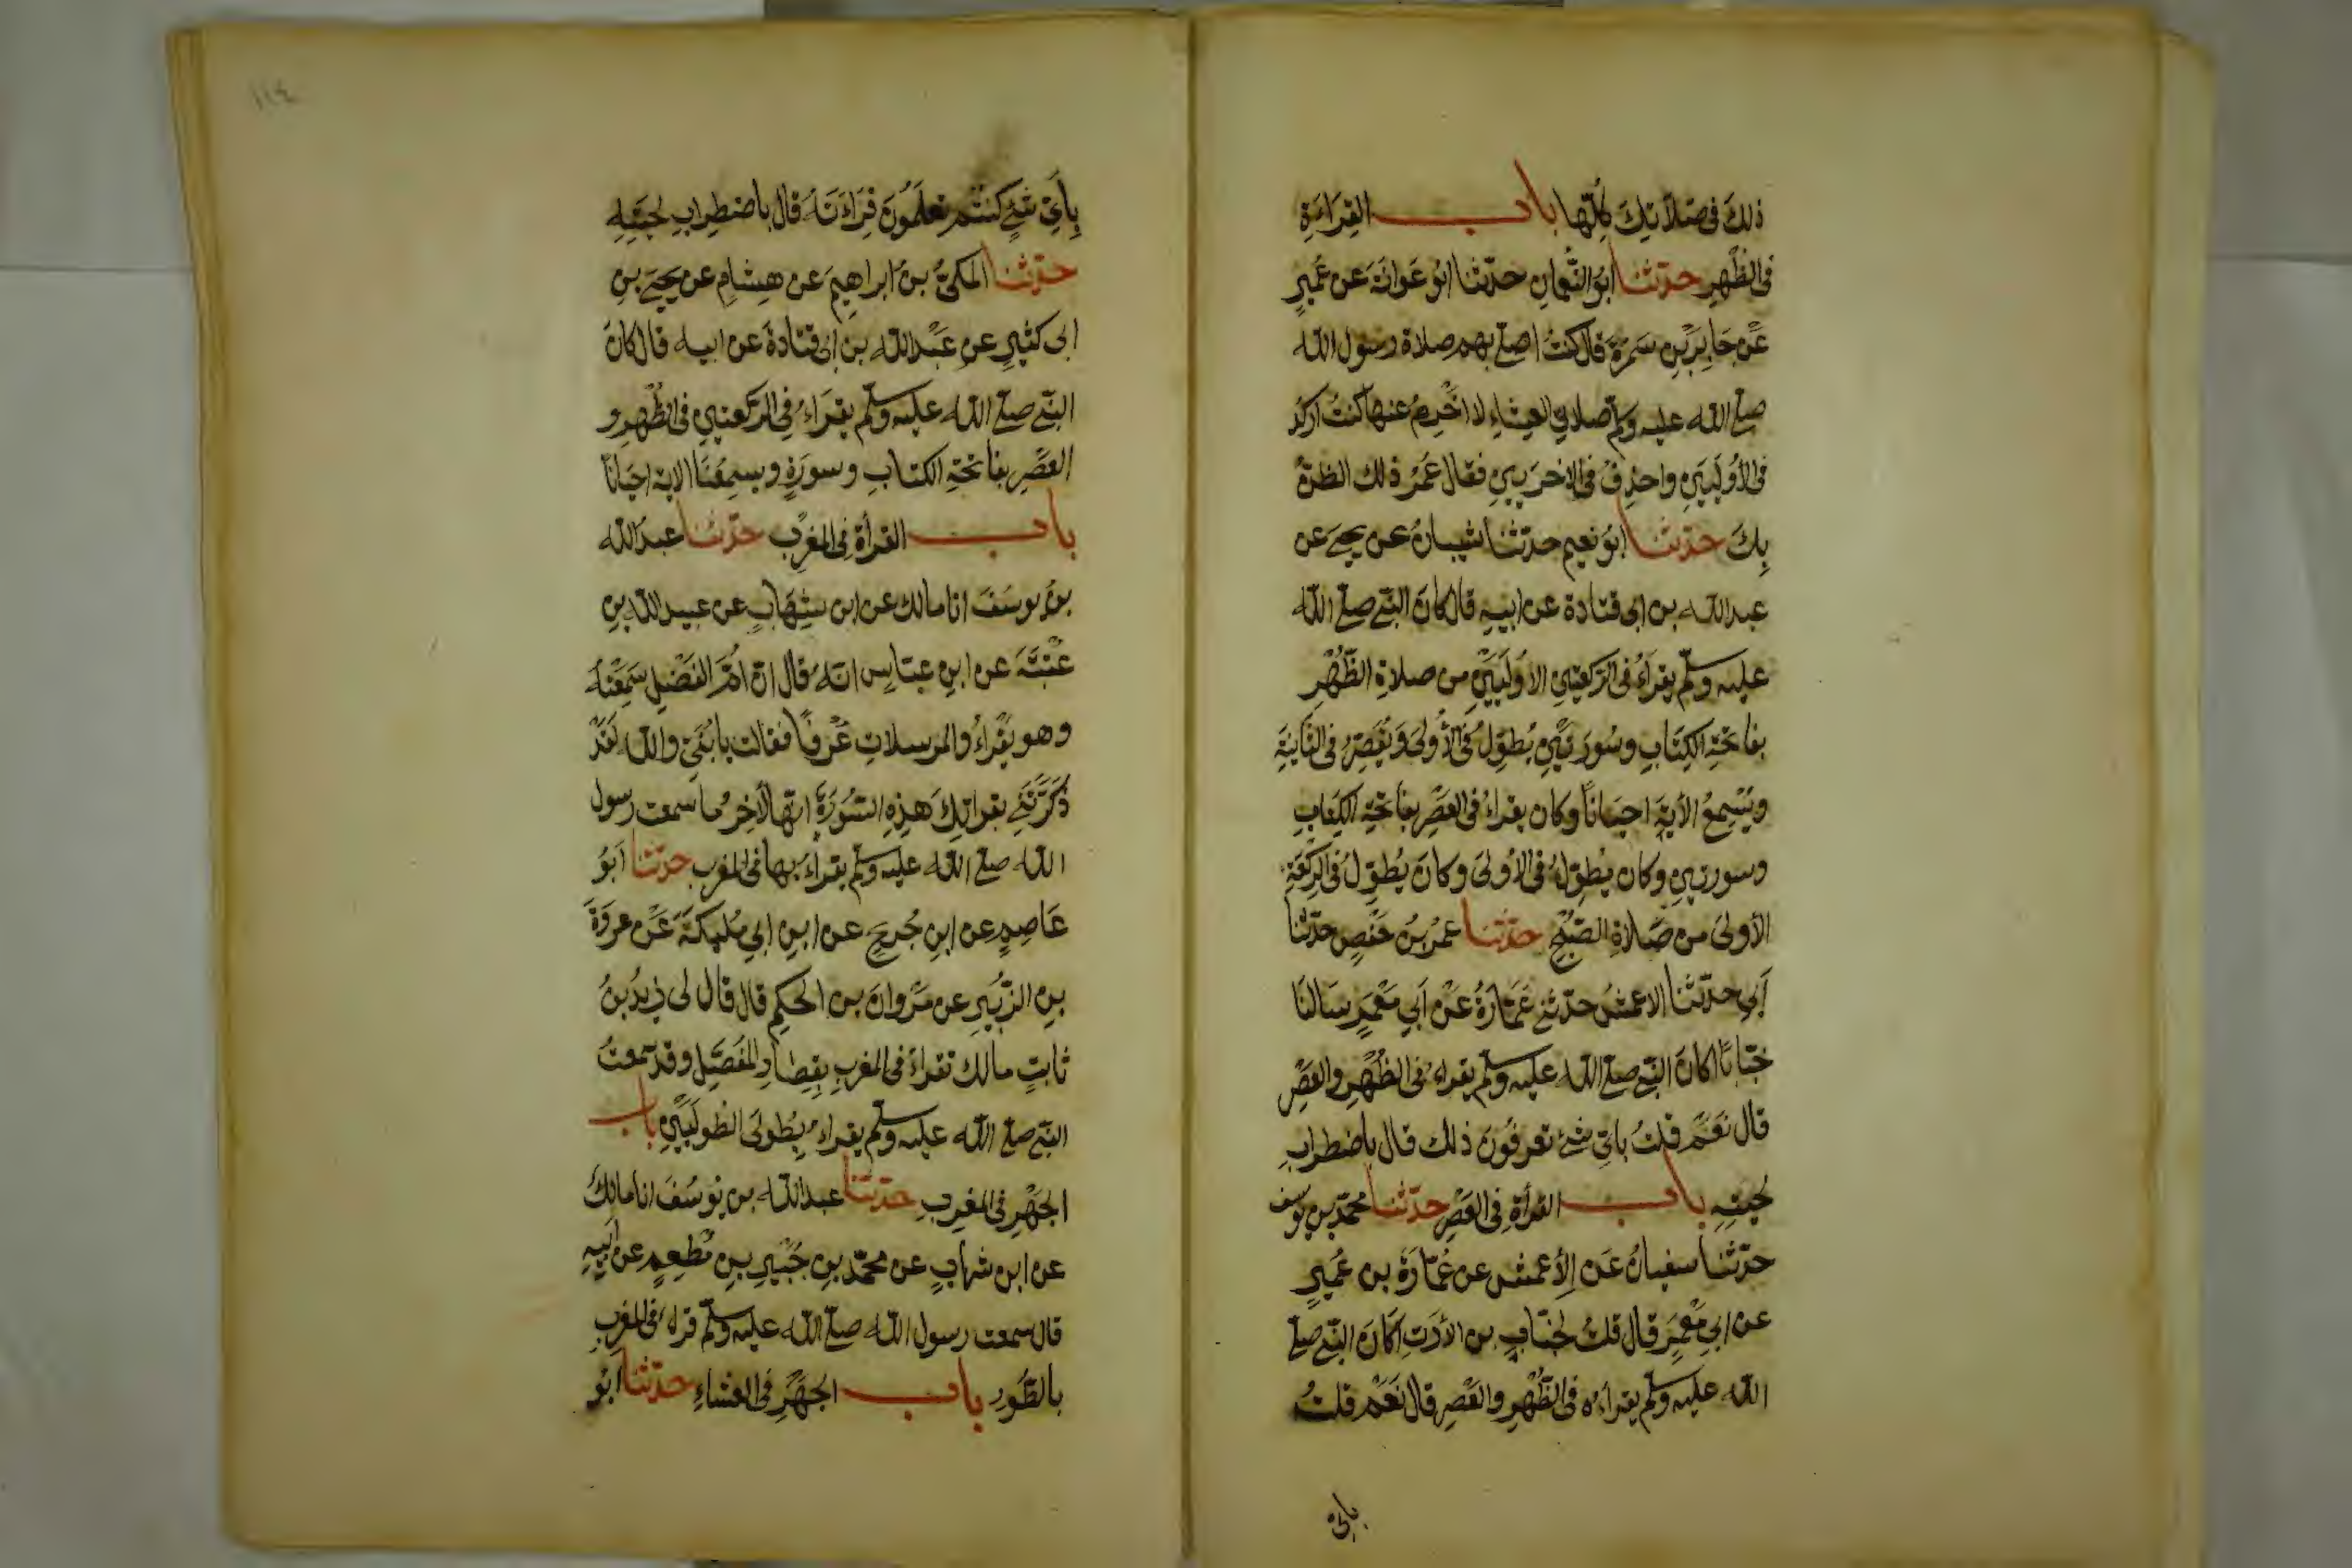 ذلكَ فى صَلاَتِكَ كُلِّها باب القِرَاءَةِ
فى الظُّهرِ حدّثنا ابوُ النُّعمانِ حدّثنا ابُو عَوانَةَ عن عُمَيرٍ
عَنْ جَابِرِ بْنِ سَمُرَةَ قال كنتُ اصلّى بهم صلاة رسول الله
صلّى الله عليه وسلّم صلاتي العِشاءِ لا اَخْرِمُ عنها كنتُ اركدُ
فى الأُولَيَيْنِ واحذِفُ فى الاخرَيينِ فقال عُمَرُ ذلك الظنّ
بِكَ حدّثنا ابُو نعيم حدّثنا شيبانُ عن يحيى عن
عبدالله بن ابى قتادة عن ابيهِ قال كانَ النّبىّ صلّى الله
عليه وسلّم يقرَاءُ فى الرّكعتينِ الاُولَيَيْنِ من صلاةِ الظُّهْرِ
بفاتحَةِ الكِتَابِ وسُورَتَيْنِ يُطوِّلُ فى الأُولىَ وَيُقَصِّرُ فى الثّانيَةِ
ويُسْمِعُ الأيَةَ احيَاناً وكان يقراءُ فى العَصْرِ بفاتحَةِ الكِتَابِ
وسورتينِ وكان يُطوّلُ فى الأولىَ وكانَ يُطوّلُ فى الرّكعَةِ
الأولىَ من صَلاَةِ الصّبْحِ حدّثنا عمَرُ بنُ حَفْصٍ حدّثنا
أبِي حدّثنا الاعمشُ حدّثنى عُمَارَةُ عَنْ اَبي مَعْمَرٍ سَالنَا
خبّاباً اكانَ النّبىّ صلّى الله عليه وسلّم يقراءُ فى الظُّهْرِ والعَصْرِ
قال نَعَم قلتُ باىّ شئ تعرفُونَ ذلك قال باضطرابِ
لحيتِهِ باب القرأة فى العَصْرِ حدّثنا محمّد بن يوسف
حدّثنا سفيانُ عَن الأعمش عن عُمَارَةَ بن عُمَيرٍ
عن ابي مَعْمَرٍ قال قلتُ لخبّابٍ بن الأرَتِ اَكَانَ النّبىّ صلّى
الله عليه وسلّم يقراءُ فى الظُّهْرِ والعَصْرِ قال نَعَمْ قلتُ
باىّ
١١٤
بِأيّ شَئٍ كنتُم تعلَمُونَ قِرَاءَتَهُ قال باضطِرابِ لحيَتِهِ
حدّثنا المكىّ بنُ ابراهِيمَ عن هِشامٍ عن يحيَى بنِ
ابى كثيرٍ عن عَبْدالله بن ابى قتادةَ عن ابيه قال كانَ
النّبىّ صلّى الله عليه وسلّم يقرَاءُ فى الرّكعتينِ فى الظُّهْرِ و
العَصْرِ بفاتحَةِ الكتابِ وسورَةٍ ويسمِعُنَا الاية احيَاناً
باب القرأة فى المغْرِبِ حدّثنا عبدالله
بنُ يوسَفَ انا مالك عن ابن شِهَابٍ عن عبيدالله بنِ
عُتْبَةَ عن ابنِ عبّاسٍ انّه قال انّ اُمَّ الفَضْلِ سَمِعَتْهُ
وهو يقْراءُ والمرسلاتِ عُرْفاً فقالت يا بُنَىَّ والله لَقَدْ
ذَكَّرْتَنِى بقرائتِكَ هذِهِ السّورَةَ انّها لأخِرُ ما سمعت رسول
الله صلّى الله عليه وسلّم يقراءُ بها فى المغربِ حدّثنا ابُو
عَاصِمٍ عن ابنِ جُريجٍ عن ابنِ ابي مُلَيكَةَ عَنْ عروَةَ
بنِ الزّبَيرِ عن مَرْوانَ بن الحكمِ قال قال لى زيدُ بنُ
ثابتٍ مالك تقراءُ فى المغربِ بِقِصَارِ المُفَصَّلِ وقد سمعتُ
النّبىّ صلّى الله عليه وسلّم يقراءُ بِطولىَ الطّولَيَيْنِ باب
الجَهْرِ فى المغرِبِ حدّثنا عبدالله بن يُوسُفَ انا مالكُ
عن ابن شهابٍ عن محمّد بنِ جُبَيرِ بنِ مُطْعِمٍ عن اَبيهِ
قال سمعت رسول الله صلّى الله عليه وسلّم قراءَ فى المغربِ
بالطّورِ باب الجَهْرِ فى العشاءِ حدّثنا ابُو